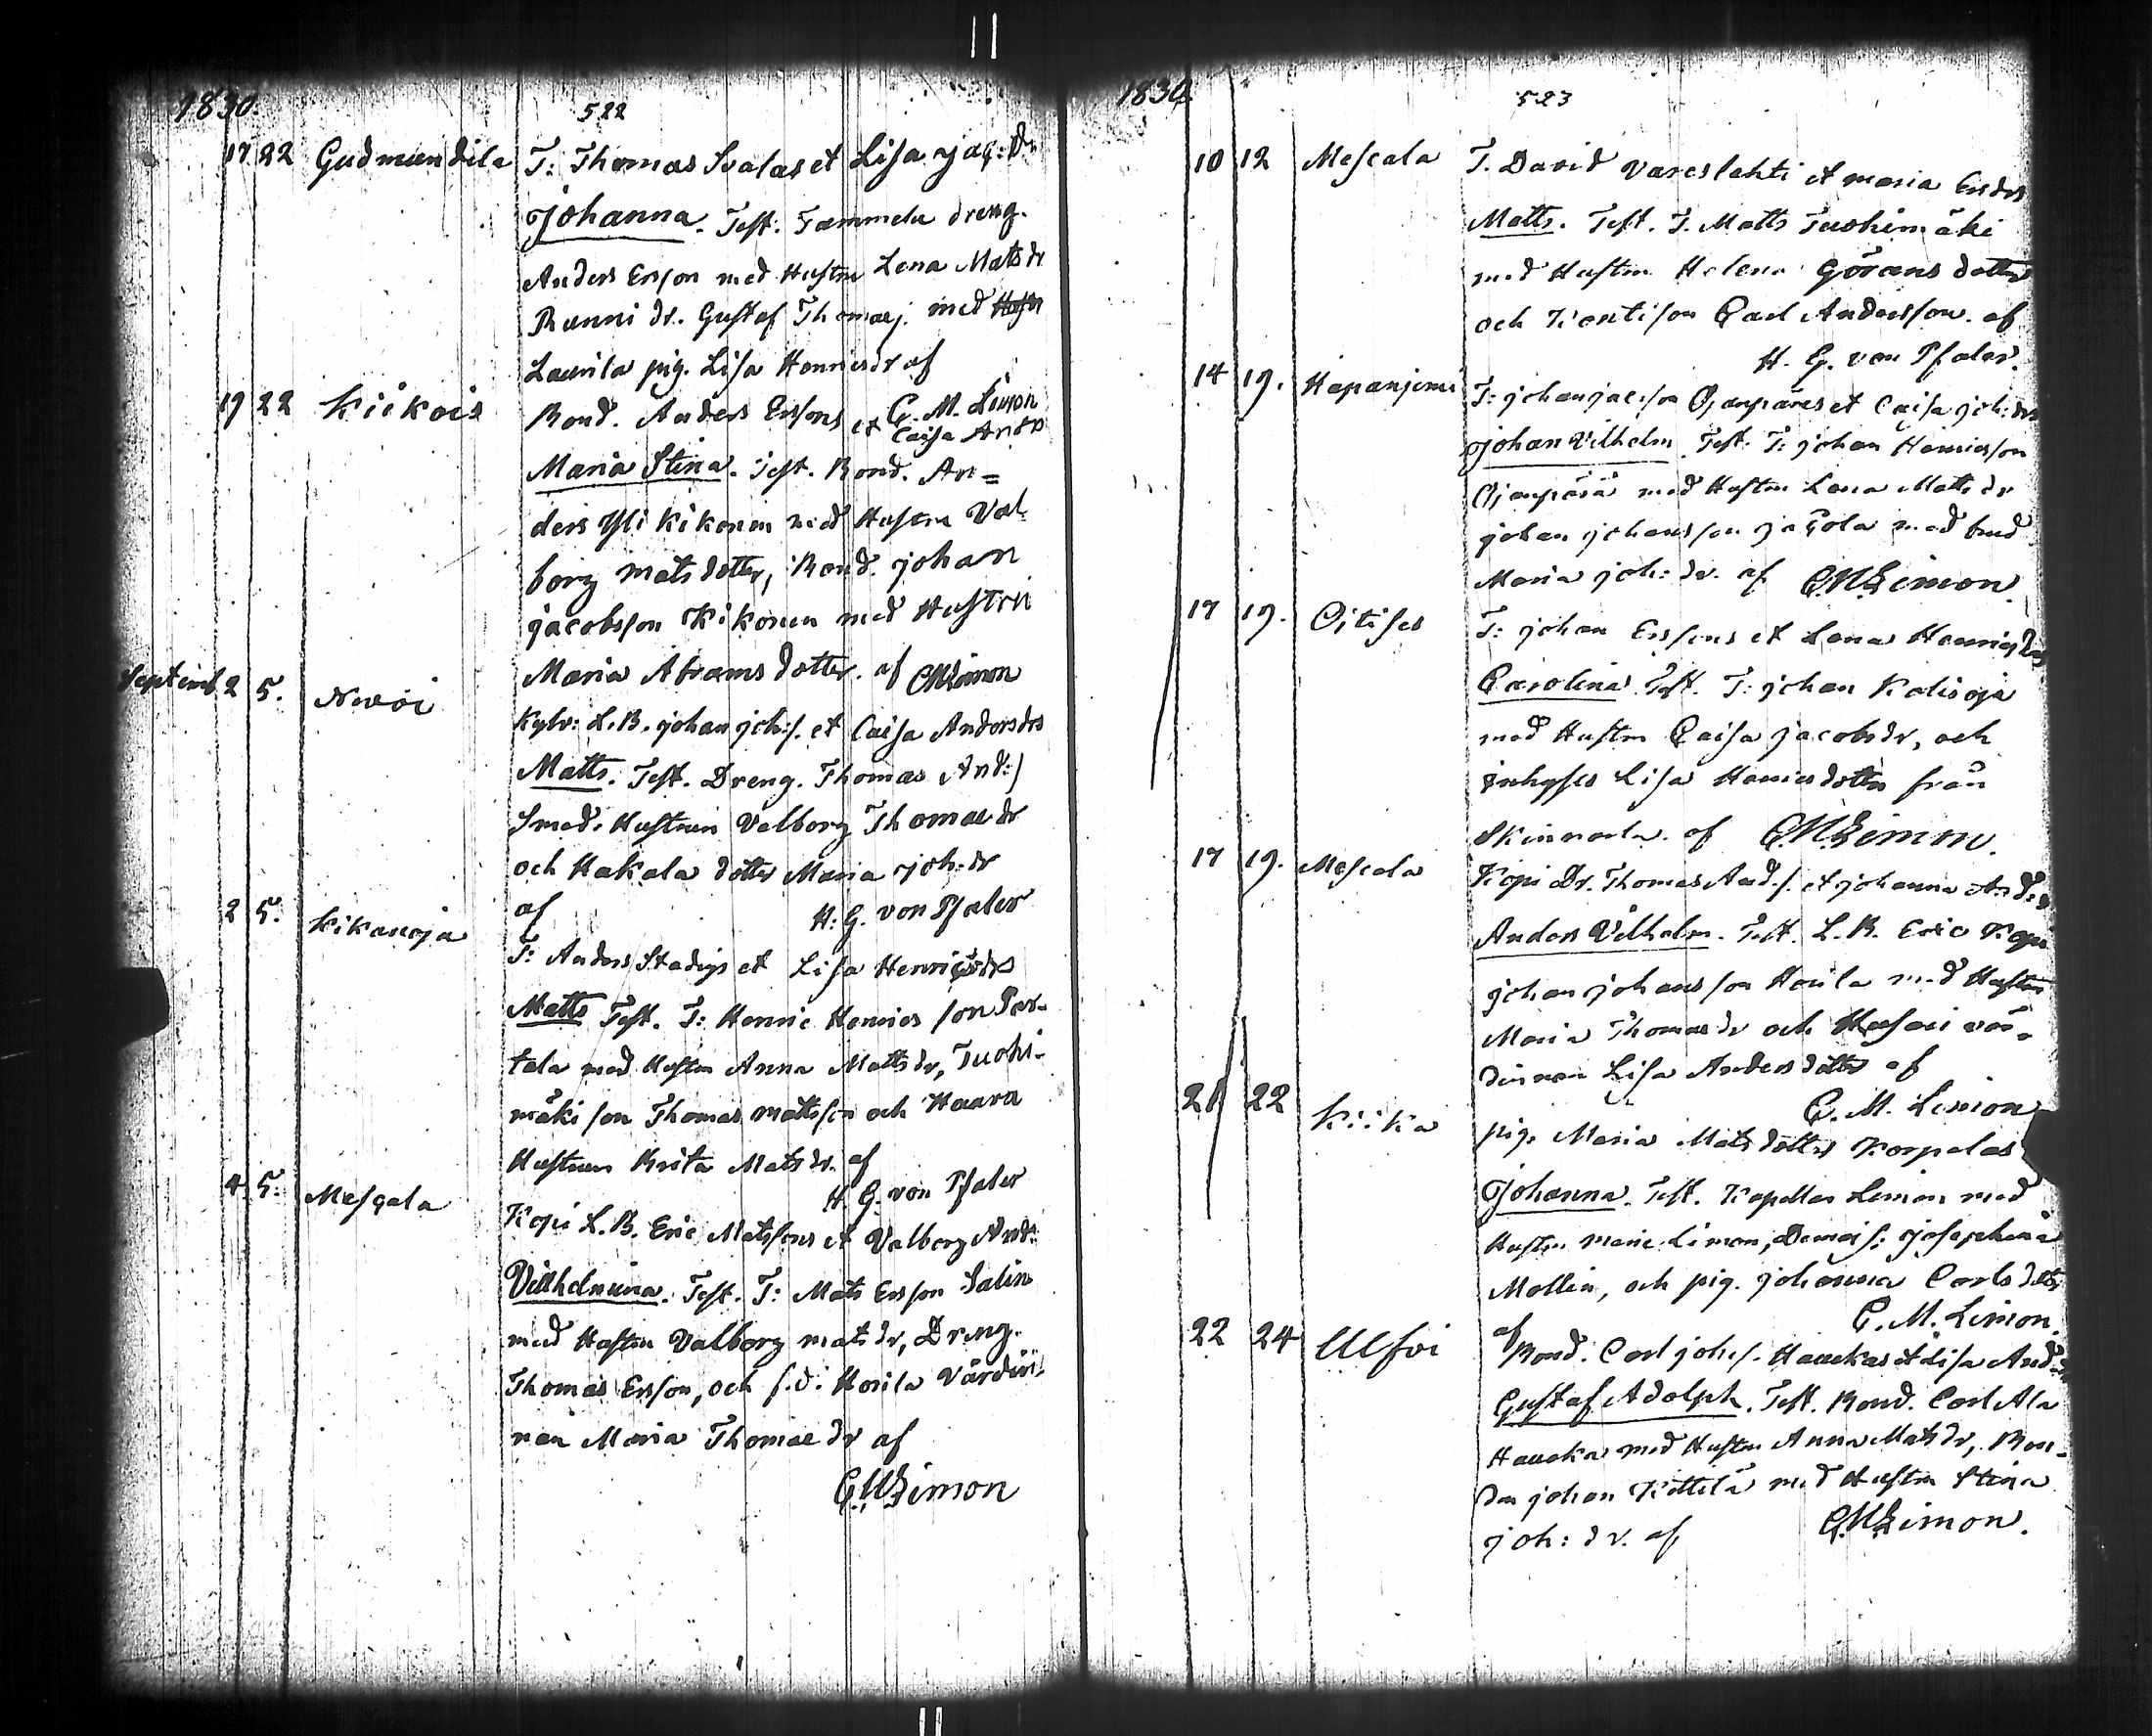 1830.
522
17 22 Gudmundila T: Thomas Svalas et Lisa Jac: Dr
Johanna. Test: Tammela dreng.
Anders Ersson med Hustru Lena Mats dr
Runni dr. Gustaf Thomasj. med
Laurila pig. Lisa Henricsdr af
C. M. Limon
19 22 Kiikois Bond. Anders Erssons et Caisa And dr
Maria Stina. Test. Bond. An=
ders Yli Kikonen med Hustru Val-
borg Matsdotter, Bond. Johan
Jacobsson Kikonen med Hustru
Maria Abramsdotter. af CMLimon
Septemb. 2 5. Kylv: L.B. Johan Joh:s. et Caisa Andersdrs
Matts. Test. Dreng. Thomas And:s
Smed. Hustrun Valborg Thomaedr
och Hakala dotter Maria Joh:dr
af H. G. von Pfaler
2 5. Kikanoja T: Anders Stadigs et Lisa Henricsdrs
Matts Test. T: Henric Henricsson Per-
tola med Hustru Anna Mattsdr, Tuohi-
mäki son Thomas Mattsson och Haara
Hustrun Brita Matsdr. af
H. G. von Pfaler
4 5. Mescala Kopi L. B. Eric Matssons et Valborg And:
Villhelmina. Test. T: Mats Ersson Salin
med Hustru Valborg Matsdr, Dreng.
Thomas Ersson, och f.d. Horila Värdin-
nan Maria Thomae dr af
CMLimon
1830.
523
10 12 Mescala T. David Vareslahti et Maria Ersdrs
Matts. Test. T. Matts Tuohimäki
med Hustru Helena Göransdotter
och Kontison Carl Andersson. af
H. G. von Pfaler.
14 19. Haapanjemi T: Johan Jacsson Ojanpäres et Caisa Joh:drs
Johan Vilhelm. Test. T: Johan Henricsson
Ojanpärä med Hustru Lena Matts dr
Johan Johansson med
Maria Joh: dr. af CMLimon.
17 19. T: Johan Erssons et Lenas Henricsdrs
Carolina. Test. T: Johan Kalisoja
med Hustru Caisa Jacobsdr, och
inhyses Lisa Henricsdotter från
Skinnarla. af CMLimon.
17 19. Mescala Kopi Dr. Thomas And:s. et Johanna And:d
Anders Vilhelm. Test. L. B. Eric Kopi
Johan Johansson Horila med Hustru
Maria Thomaedr och Husari vär-
dinnan Lisa Andersdotter af
C. M. Limon
21 22 Kiika pig. Maria Matsdotters Korpelas
Johanna. Test. Kapellan Limon med
Hustru Marie Limon, Demois: Josephina
Mollin, och pig. Johanna Carlsdotter
af C. M. Limon.
22 24 Bond. Carl Joh:s. Haukas et Lisa And:
Gustaf Adolph. Test. Bond. Carl Ala
Hauka med Hustru Anna Matsdr, Bon-
den Johan Kittilä med Hustru Stina
Joh: dr. af CMLimon.